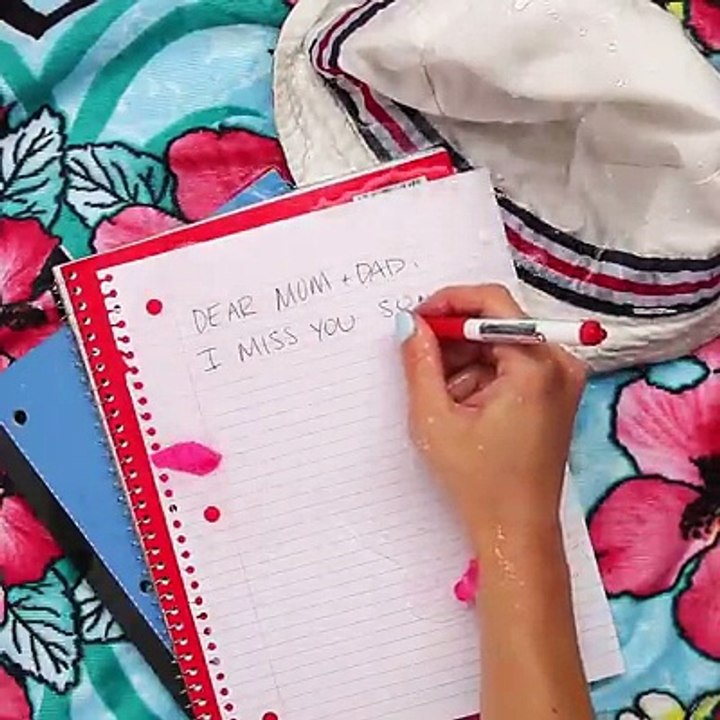 DEAR MOM + DAD,
I MISS YOU